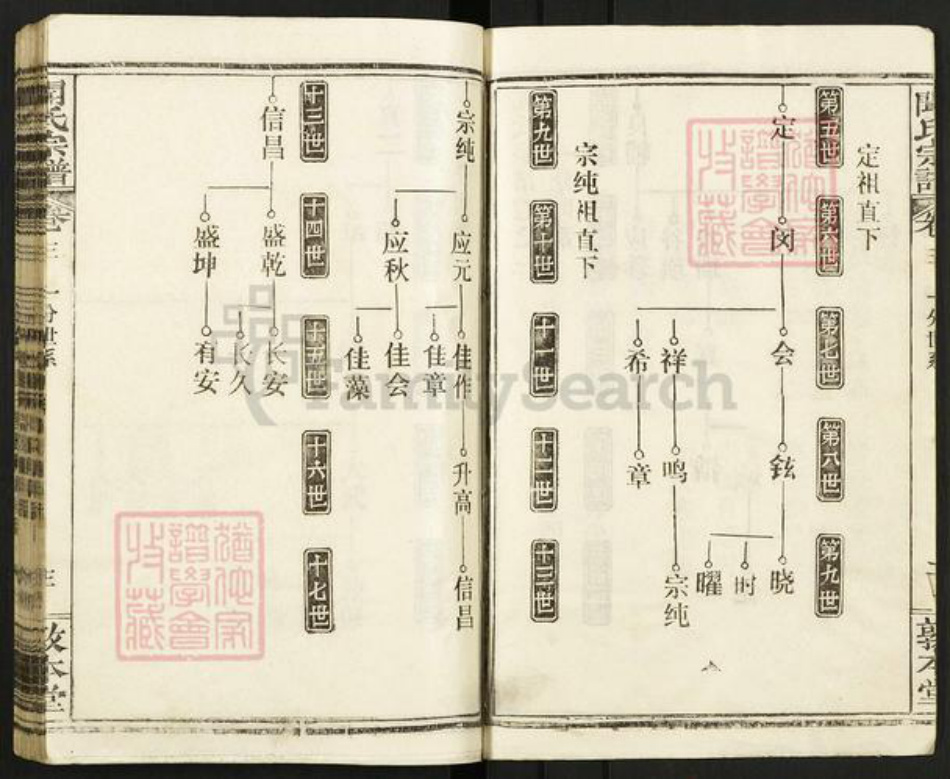 定祖直下
第五世
第六世
第七世
第八世
第九世
定
闵
会
铉
晓
时
曜
祥
鸣
宗纯
希
章
宗纯祖直下
第九世
第十世
十一世
十二世
十三世
宗纯
应元
佳作
升高
信昌
佳章
应秋
佳会
佳藻
十三世
十四世
十五世
十六世
十七世
信昌
盛乾
长安
长久
盛坤
有安
氏宗譜
卷三
敦本堂
FamilySearch